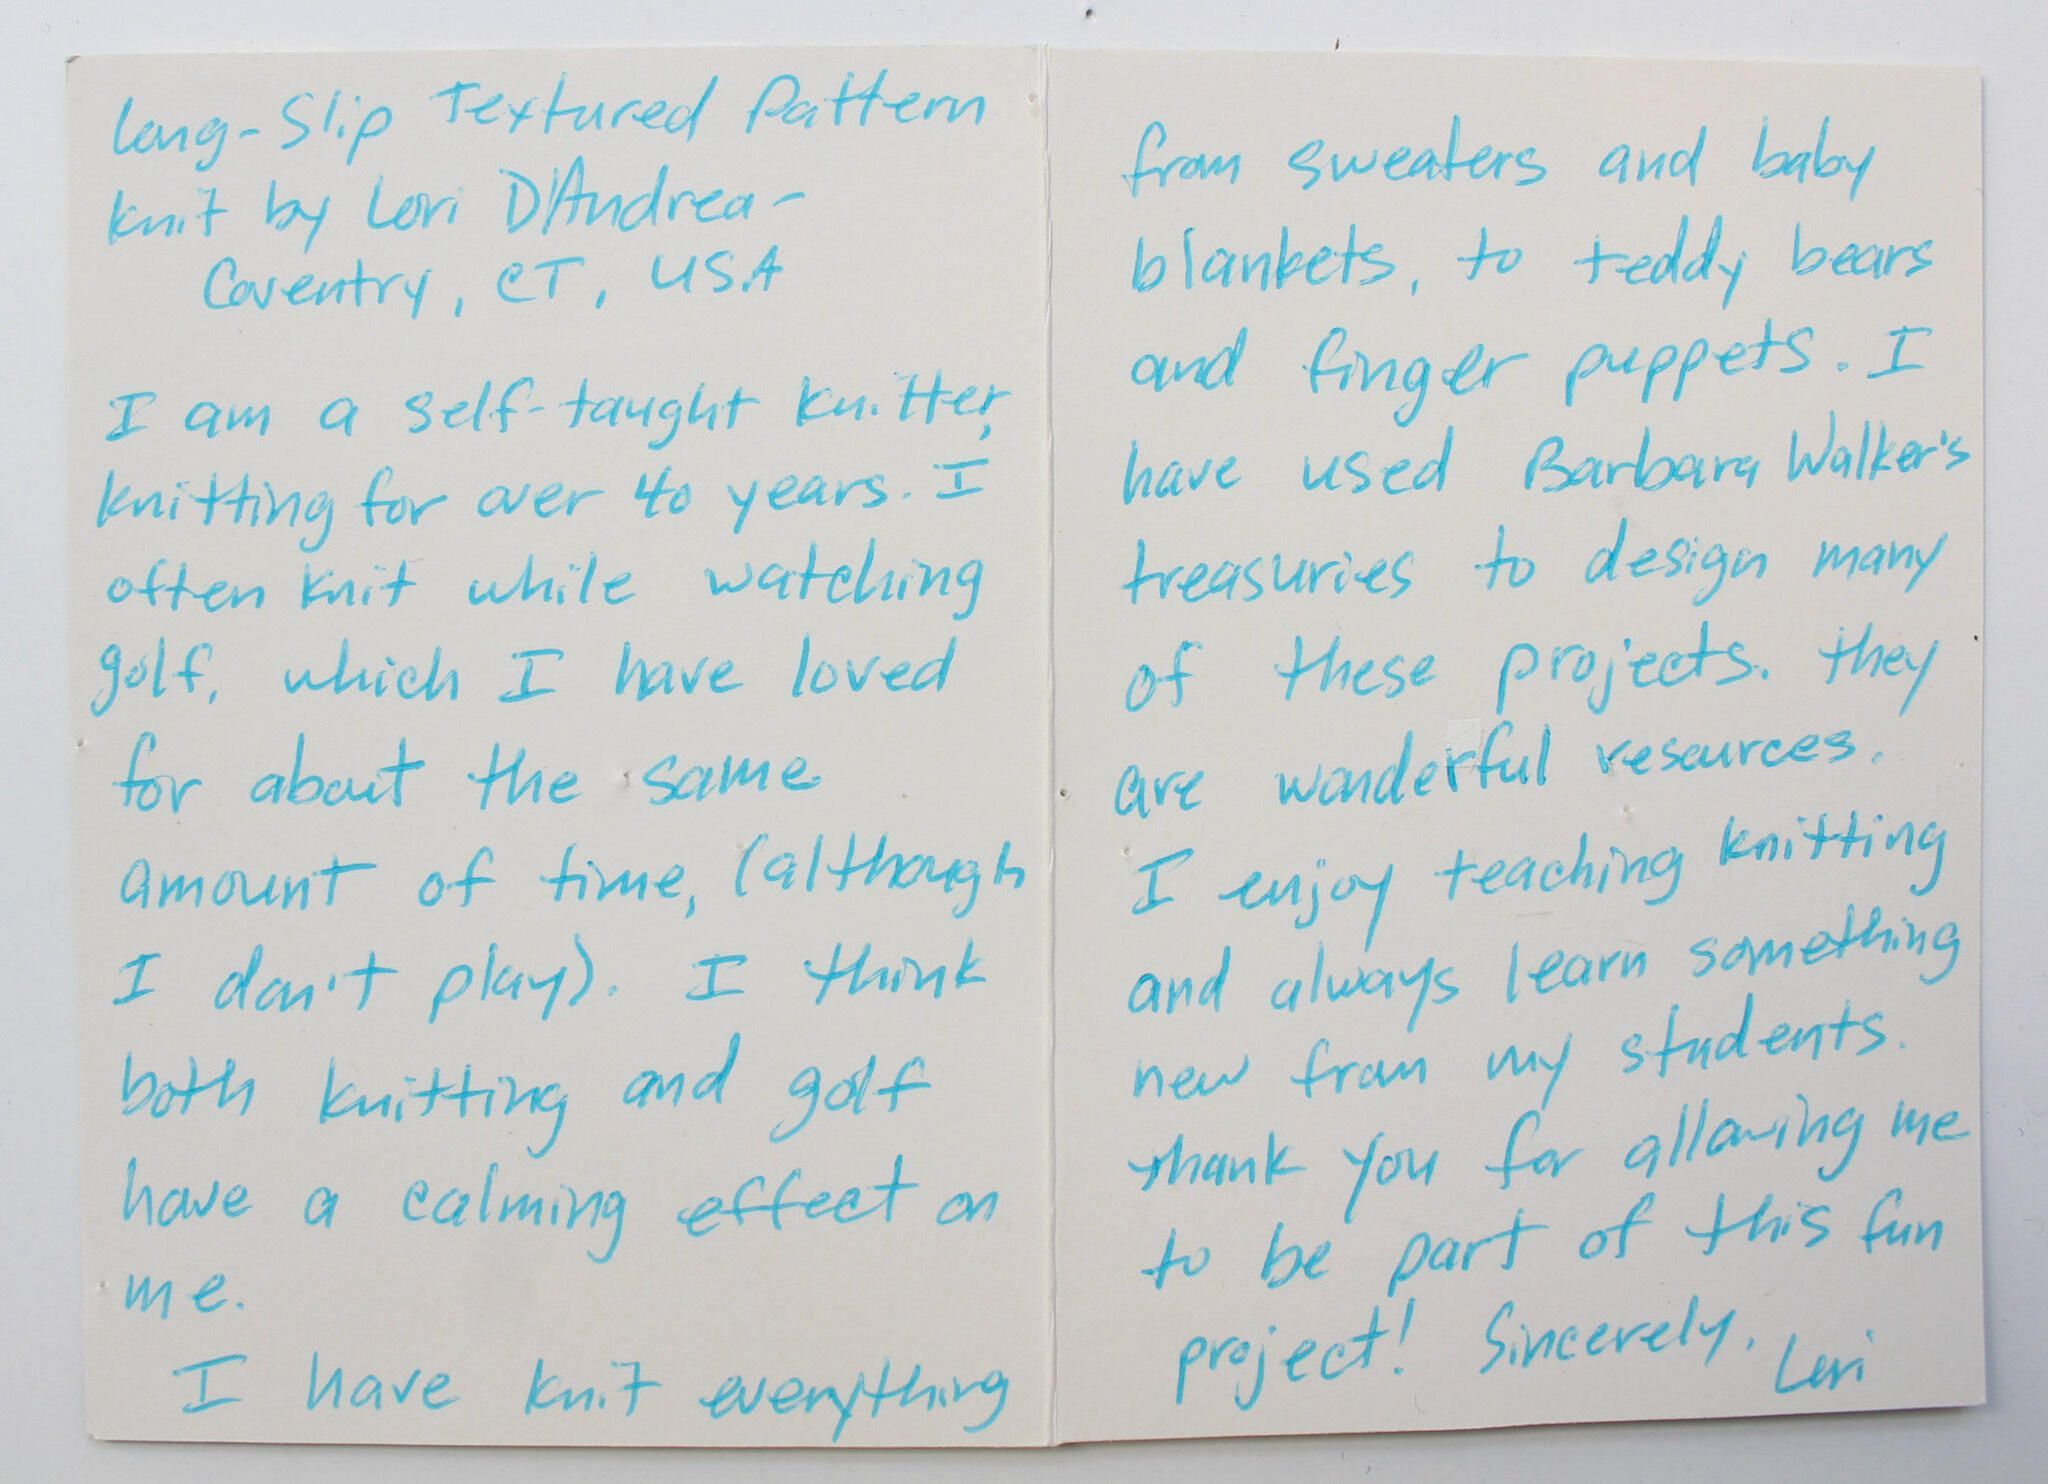 Long-Slip Textured Pattern
knit by Lori D'Andrea-
Coventry, CT, USA
I am a self-taught knitter,
knitting for over 40 years. I
often knit while watching
golf, which I have loved
for about the same
amount of time, (although
I don't play). I think
both knitting and golf
have a calming effect on
me.
I have knit everything
from sweaters and baby
blankets, to teddy bears
and finger puppets. I
have used Barbara Walker's
treasuries to design many
of these projects. They
are wonderful resources.
I enjoy teaching knitting
and always learn something
new from my students.
Thank you for allowing me
to be part of this fun
project! Sincerely,
Lori